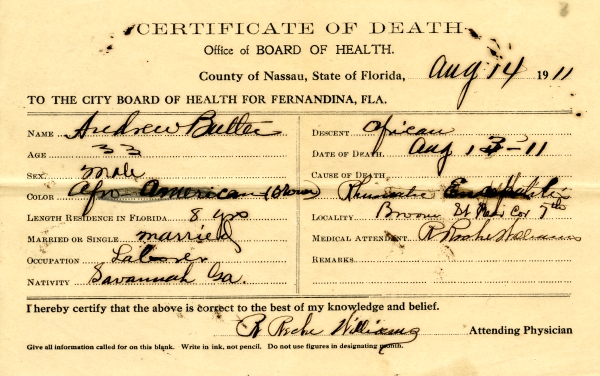 CERTIFICATE OF DEATH
Office of BOARD OF HEALTH.
County of Nassau, State of Florida, Aug 14 1911
TO THE CITY BOARD OF HEALTH FOR FERNANDINA, FLA.
NAME Andrew Butler
AGE 33
SEX Male
COLOR Afro American
LENGTH RESIDENCE IN FLORIDA 8 yrs
MARRIED OR SINGLE married
OCCUPATION Laborer
NATIVITY Savannah Ga.
DESCENT African
DATE OF DEATH Aug 13-11
CAUSE OF DEATH
Rheumatic
LOCALITY Broome St Near Cor 7th
MEDICAL ATTENDENT R Roche Williams
REMARKS
I hereby certify that the above is correct to the best of my knowledge and belief.
R Roche Williams Attending Physician
Give all information called for on this blank. Write in ink, not pencil. Do not use figures in designating month.